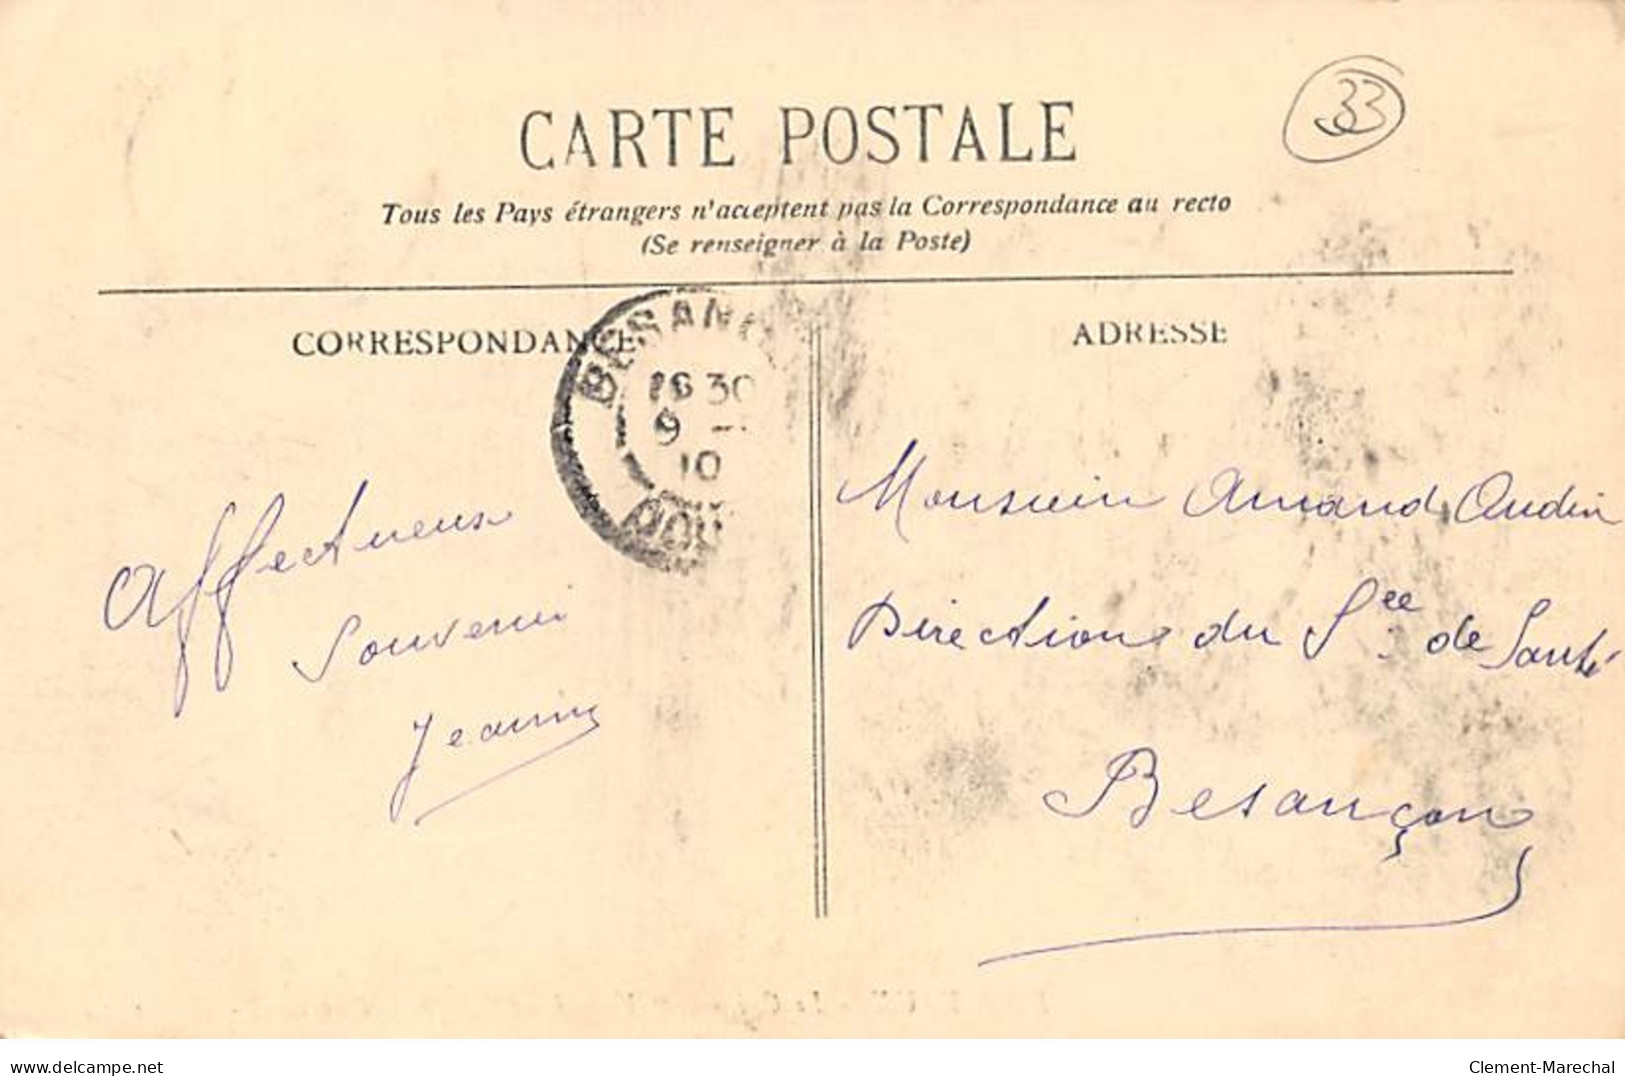 33
CARTE POSTALE
Tous les Pays étrangers n'acceptent pas la Correspondance au recto
(Se renseigner à la Poste)
CORRESPONDANCE
ADRESSE
BESANÇ
18 30
9 -
10
DOU
Affectueux
Souvenir
Jeanny
Monsieur Armand Oudin
Direction du See de Santé
Besançon
delcampe.net
Clement-Marechal